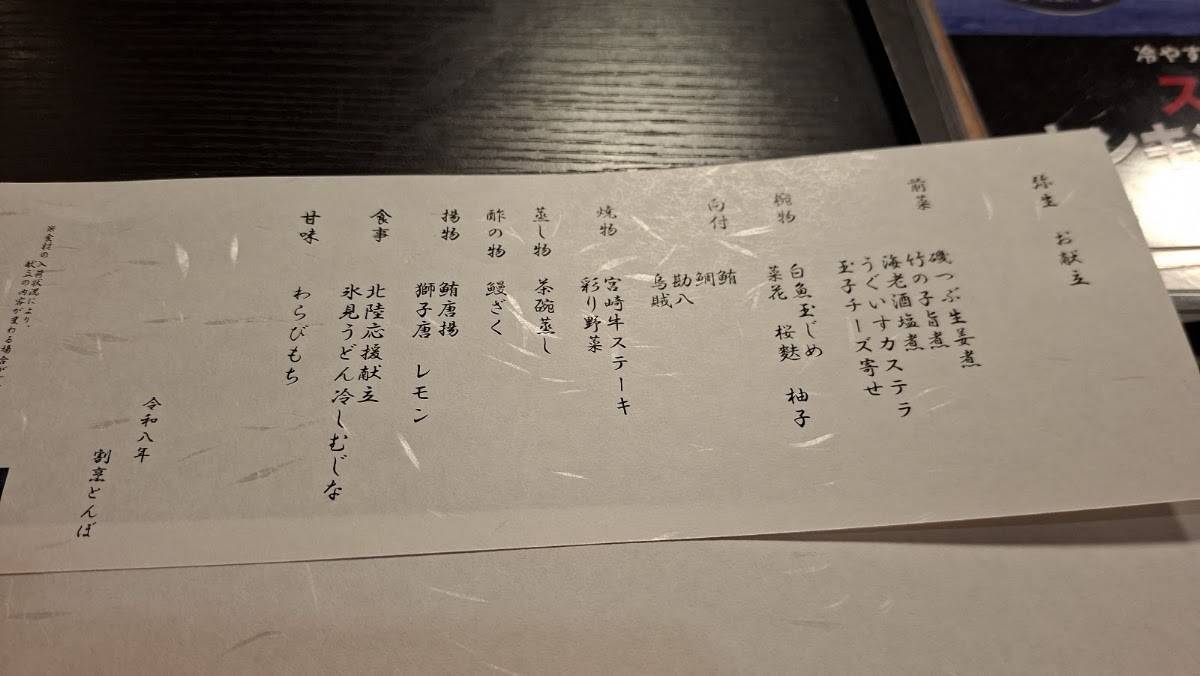 弥生 お献立
前菜
磯つぶ生姜煮
竹の子旨煮
海老酒塩煮
うぐいすカステラ
玉子チーズ寄せ
椀物
白魚玉じめ
菜花 桜麩 柚子
向付
鮪
鯛
勘八
烏賊
焼物
宮崎牛ステーキ
彩り野菜
蒸し物
茶碗蒸し
酢の物
鰻ざく
揚物
鮪唐揚
獅子唐 レモン
食事
北陸応援献立
氷見うどん冷しむじな
甘味
わらびもち
令和八年
割烹とんぼ
※食材の入荷状況により、
献立の内容が変わる場合が
冷やす
ス
キ